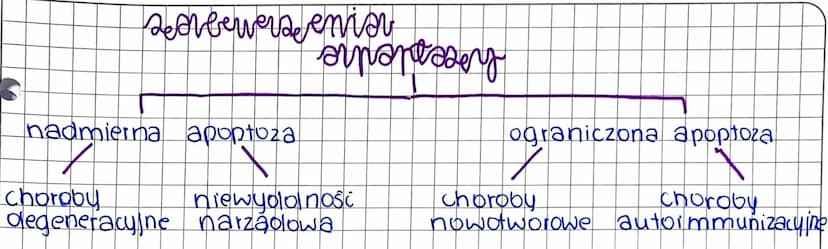 zaburzenia
apoptozy
nadmierna apoptoza
ograniczona apoptoza
choroby
degeneracyjne
niewydolność
narządowa
choroby
nowotworowe
choroby
autoimmunizacyjne